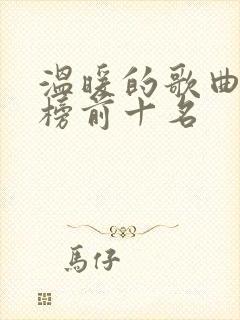 温暖的歌曲
榜前十名
馬仔